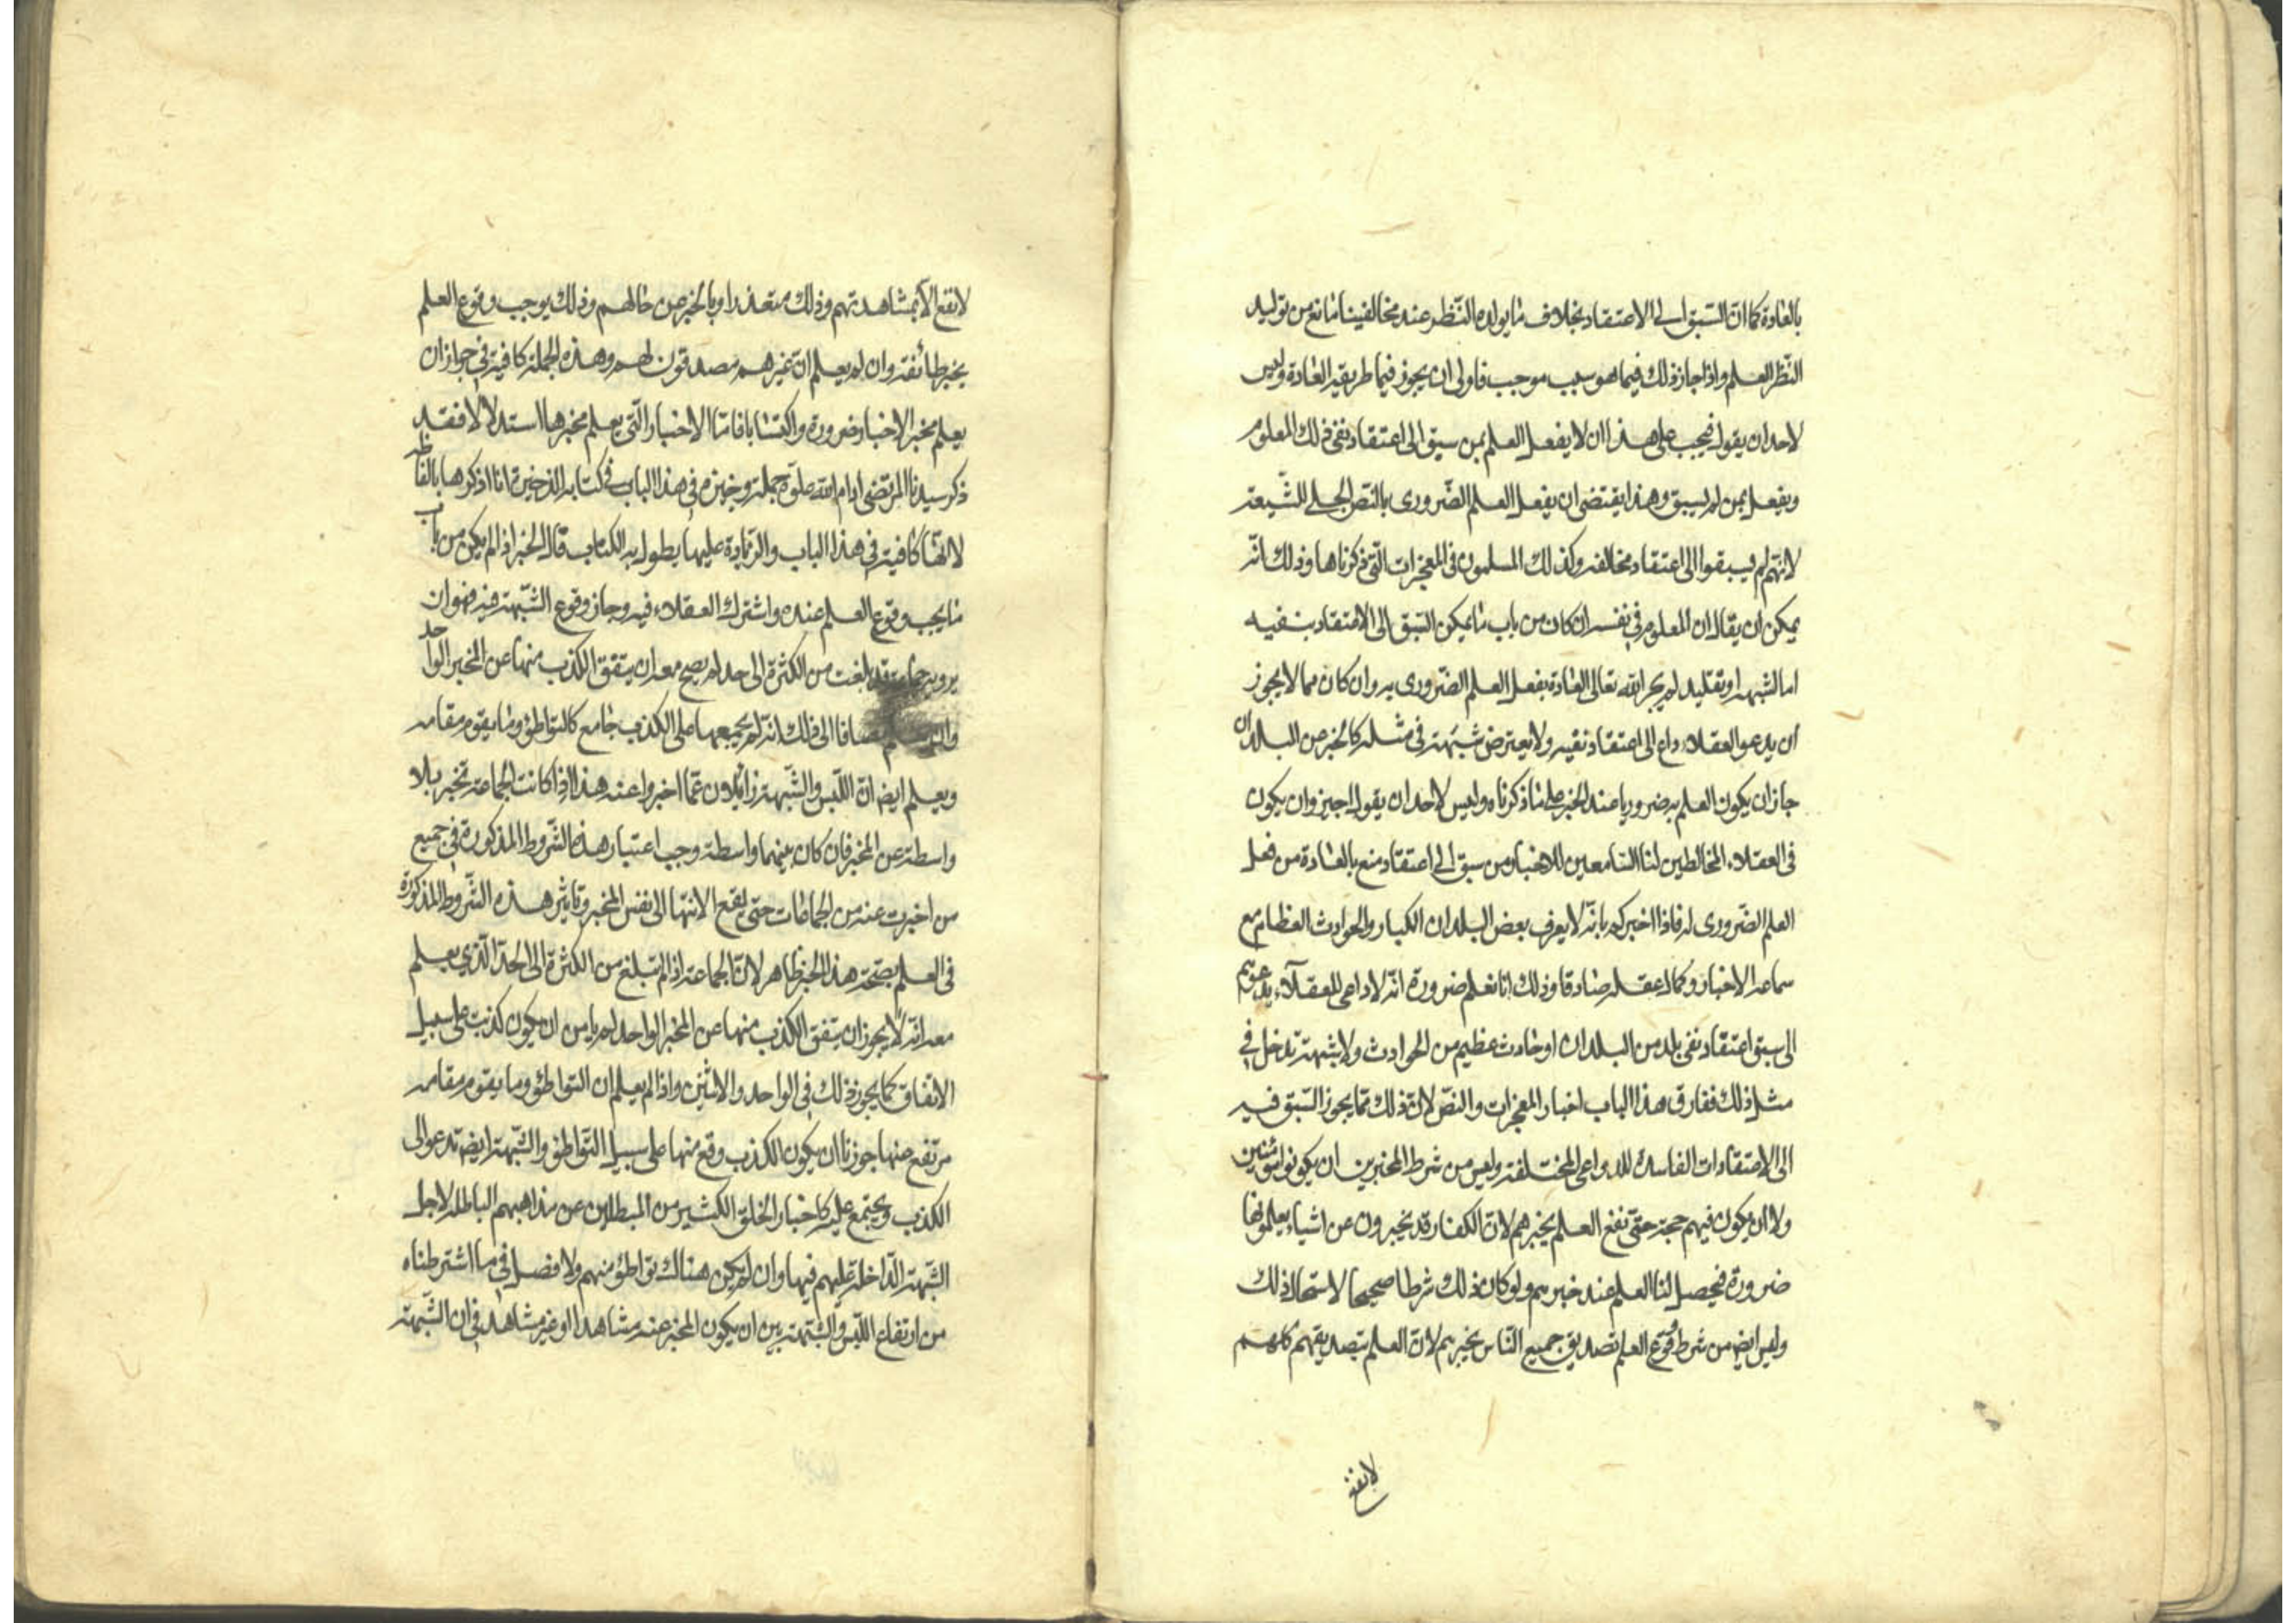 بالعادة كما ان السبق الى الاعتقاد بخلاف ما يولده النظر عند مخالفينا مانع من توليد
النظر العلم واذا جاز ذلك فيما هو سبب موجب فاولى ان يجوز فيما طريقه العادة وليس
لاحد ان يقول فيجب على هذا ان لا يفعل العلم بمن سبق الى اعتقاد نفى ذلك المعلوم
ويفعل بمن لم يسبق وهذا يقتضى ان يفعل العلم الضرورى بالنص الجلى للشيعة
لانهم لم يسبقوا الى اعتقاد مخالفه وكذلك المسلمون فى المعجزات التى ذكرناها وذلك انه
يمكن ان يقال ان المعلوم فى نفسه ان كان من باب ما يمكن السبق الى الاعتقاد بنفيه
اما لشبهة او تقليد لم يجر الله تعالى العادة بفعل العلم الضرورى به وان كان مما لا يجوز
ان يدعو العقلاء داع الى اعتقاد نفيه ولا يعترض شبهة فى مثله كالخبر عن البلدان
جاز ان يكون العلم به ضروريا عند الخبر على ما ذكرناه وليس لاحد ان يقول اجيزوا ان يكون
فى العقلاء المخالطين لنا السامعين للاخبار من سبق الى اعتقاد منع بالعادة من فعل
العلم الضرورى له فاذا اخبركم بانه لا يعرف بعض البلدان الكبار والحوادث العظام مع
سماعه الاخبار وكمال عقله صادقا وذلك انا نعلم ضرورة انه لا داعى للعقلاء يدعوهم
الى سبق اعتقاد نفى بلد من البلدان او حادث عظيم من الحوادث ولا شبهة تدخل فى
مثل ذلك ففارق هذا الباب اخبار المعجزات والنص لان ذلك مما يجوز السبق فيه
الى الاعتقادات الفاسدة للدواعى المختلفة وليس من شرط المخبرين ان يكونوا مؤمنين
ولا ان يكون فيهم حجة حتى يقع العلم بخبرهم لان الكفار قد يخبرون عن اشياء يعلمونها
ضرورة فيحصل لنا العلم عند خبرهم ولو كان ذلك شرطا صحيحا لاستحال ذلك
وليس ايض من شرط وقوع العلم تصديق جميع الناس بخبرهم لان العلم بتصديقهم كلهم
لا يقع
لا يقع الا بمشاهدتهم وذلك متعذر او بالخبر عن حالهم وذلك يوجب وقوع العلم
بخبر طائفة وان لم يعلم ان غيرهم مصدقون لهم وهذه الجملة كافية فى جواز ان
يعلم مخبر الاخبار ضرورة واكتسابا فاما الاخبار التى يعلم مخبرها استدلالا فقد
ذكر سيدنا المرتضى ادام الله علوه جملة وجيزة فى هذا الباب فى كتابه الذخيرة انا اذكرها بالفاظه
لانها كافية فى هذا الباب والزيادة عليها يطول به الكتاب قال الخبر اذا لم يكن من باب
ما يجب وقوع العلم عنده واشترك العقلاء فيه وجاز وقوع الشبهة فيه فهو ان
يرويه جماعة قد بلغت من الكثرة الى حد لا يصح معه ان يتفق الكذب منها عن المخبر الواحد
مضافا الى ذلك انه لم يجمعها على الكذب جامع كالتواطؤ وما يقوم مقامه
ويعلم ايض ان اللبس والشبهة زائلان عما اخبروا عنه هذا اذا كانت الجماعة تخبر بلا
واسطة عن المخبر فان كان بينهما واسطة وجب اعتبار هذه الشروط المذكورة فى جميع
من اخبرت عنه من الجماعات حتى يقع الانتهاء الى نفس المخبر وتاثير هذه الشروط المذكورة
فى العلم بصحة هذا الخبر ظاهر لان الجماعة اذا لم تبلغ من الكثرة الى الحد الذى يعلم
معه انه لا يجوز ان يتفق الكذب منها عن المخبر الواحد لم يامن ان يكون كذبت على سبيل
الاتفاق كما يجوز ذلك فى الواحد والاثنين واذا لم يعلم ان التواطؤ وما يقوم مقامه
مرتفع عنها جوزنا ان يكون الكذب وقع منها على سبيل التواطؤ والشبهة ايض تدعو الى
الكذب ويجتمع عليه كاخبار الخلق الكثير من المبطلين عن مذاهبهم الباطلة لاجل
الشبهة الداخلة عليهم فيها وان لم يكن هناك تواطؤ منهم ولا فصل فى ما اشترطناه
من ارتفاع اللبس والشبهة بين ان يكون المخبر عنه مشاهدا او غير مشاهد فى ان الشبهة